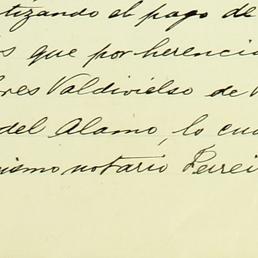 tizando el pago de
s que por herencia
res Valdivielso de
del Alamo, lo cua
ismo notario Ferrei